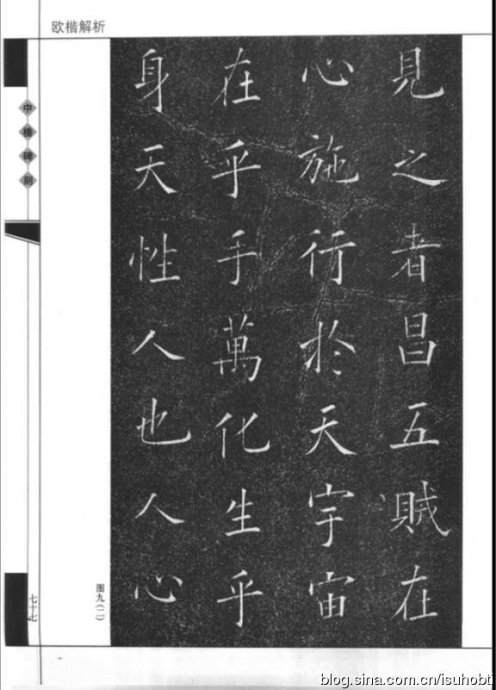 欧楷解析
見之者昌五賊在
心施行於天宇宙
在乎手萬化生乎
身天性人也人心
图九(二)
七十七
blog.sina.com.cn/isuhobt